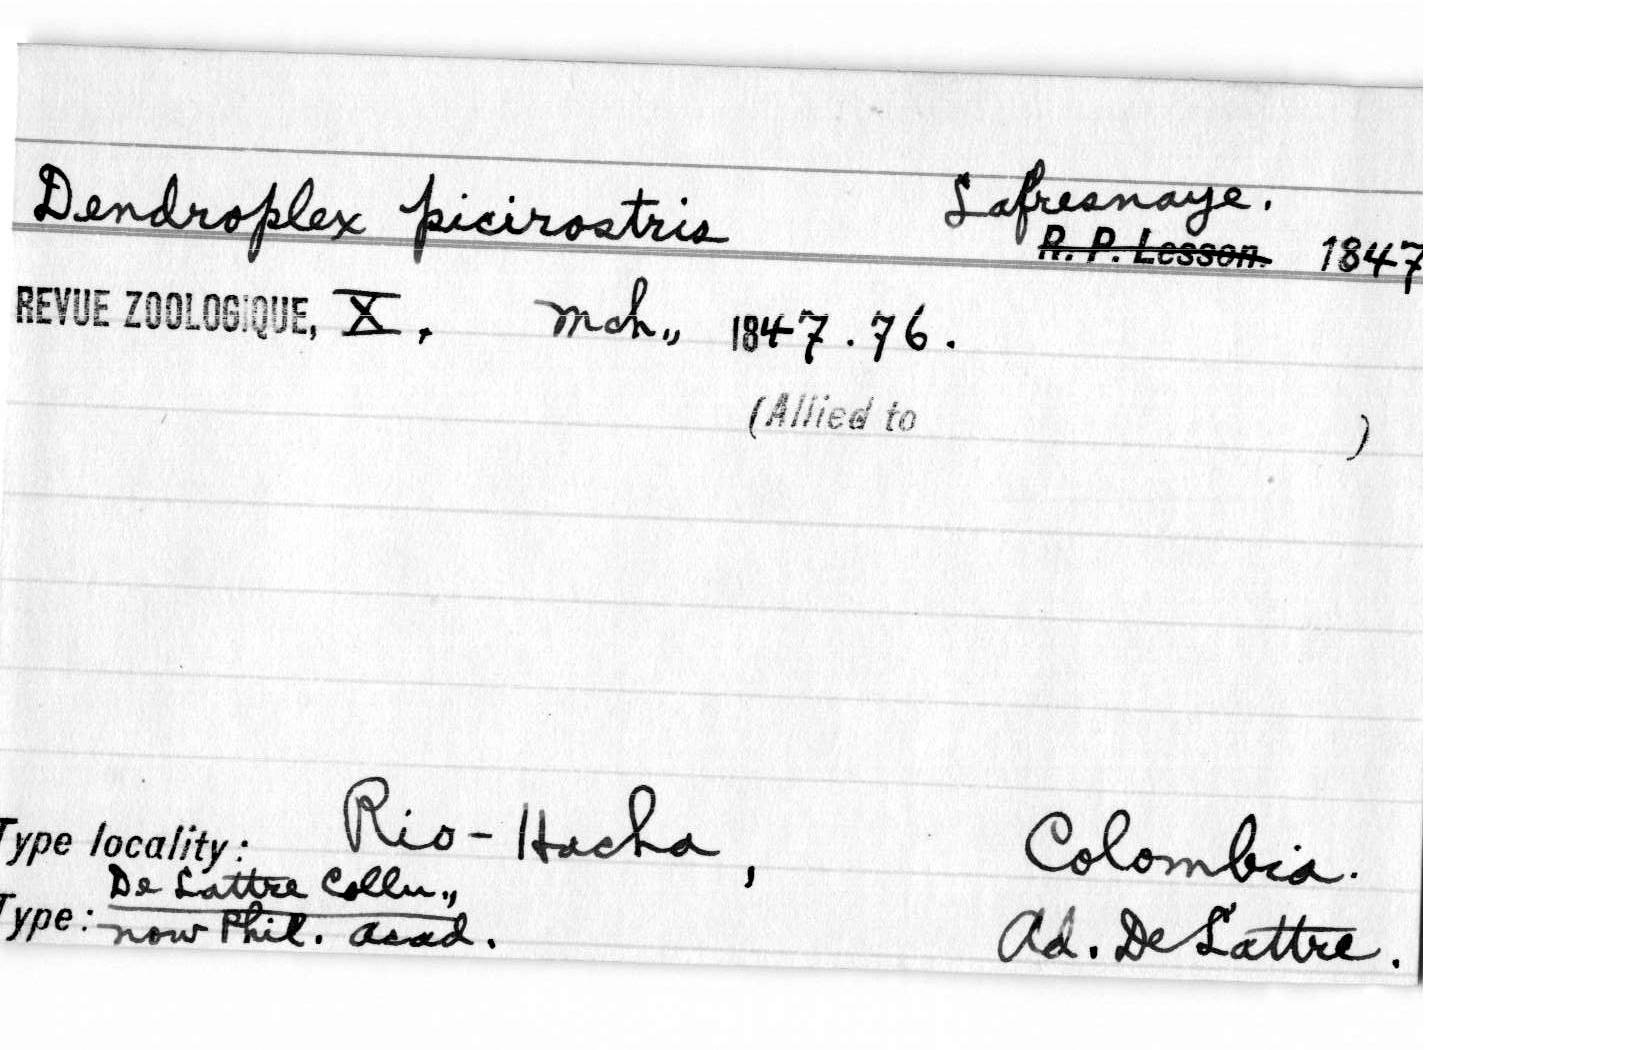 Dendroplex picirostris Lafresnaye.
R. P. Lesson. 1847
REVUE ZOOLOGIQUE, X, Mch., 1847. 76.
(Allied to )
Type locality: Rio-Hacha, Colombia.
De Lattre Colln.,
Type: now Phil. Acad. Ad. De Lattre.